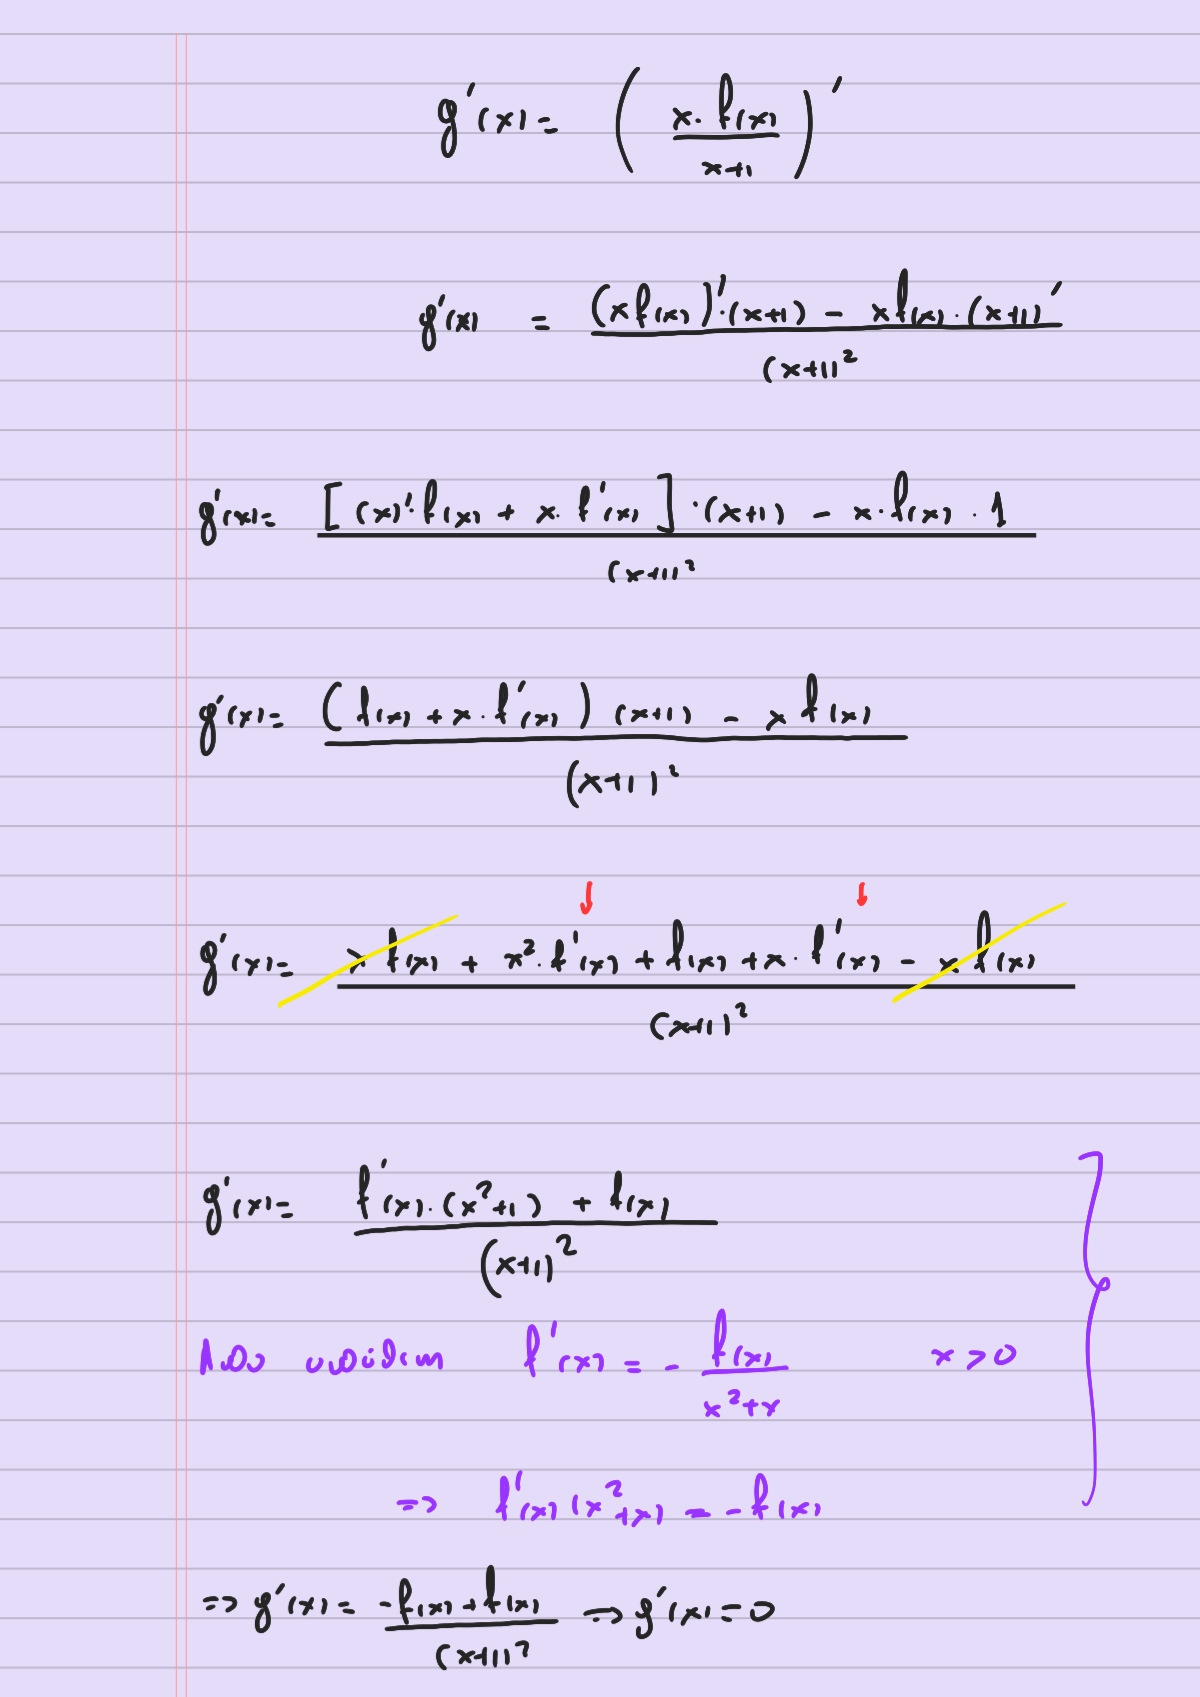 g'(x) = ( x·f(x) / x+1 )'
g'(x) = (x f(x))'·(x+1) − x f(x)·(x+1)' / (x+1)²
g'(x) = [ (x)'·f(x) + x·f'(x) ]·(x+1) − x·f(x)·1 / (x+1)²
g'(x) = ( f(x) + x·f'(x) ) (x+1) − x f(x) / (x+1)²
g'(x) = x f(x) + x²·f'(x) + f(x) + x·f'(x) − x f(x) / (x+1)²
g'(x) = f'(x)·(x²+1) + f(x) / (x+1)²
Από υπόθεση f'(x) = − f(x) / x²+x x > 0
=> f'(x) (x²+x) = −f(x)
=> g'(x) = −f(x) + f(x) / (x+1)² => g'(x) = 0